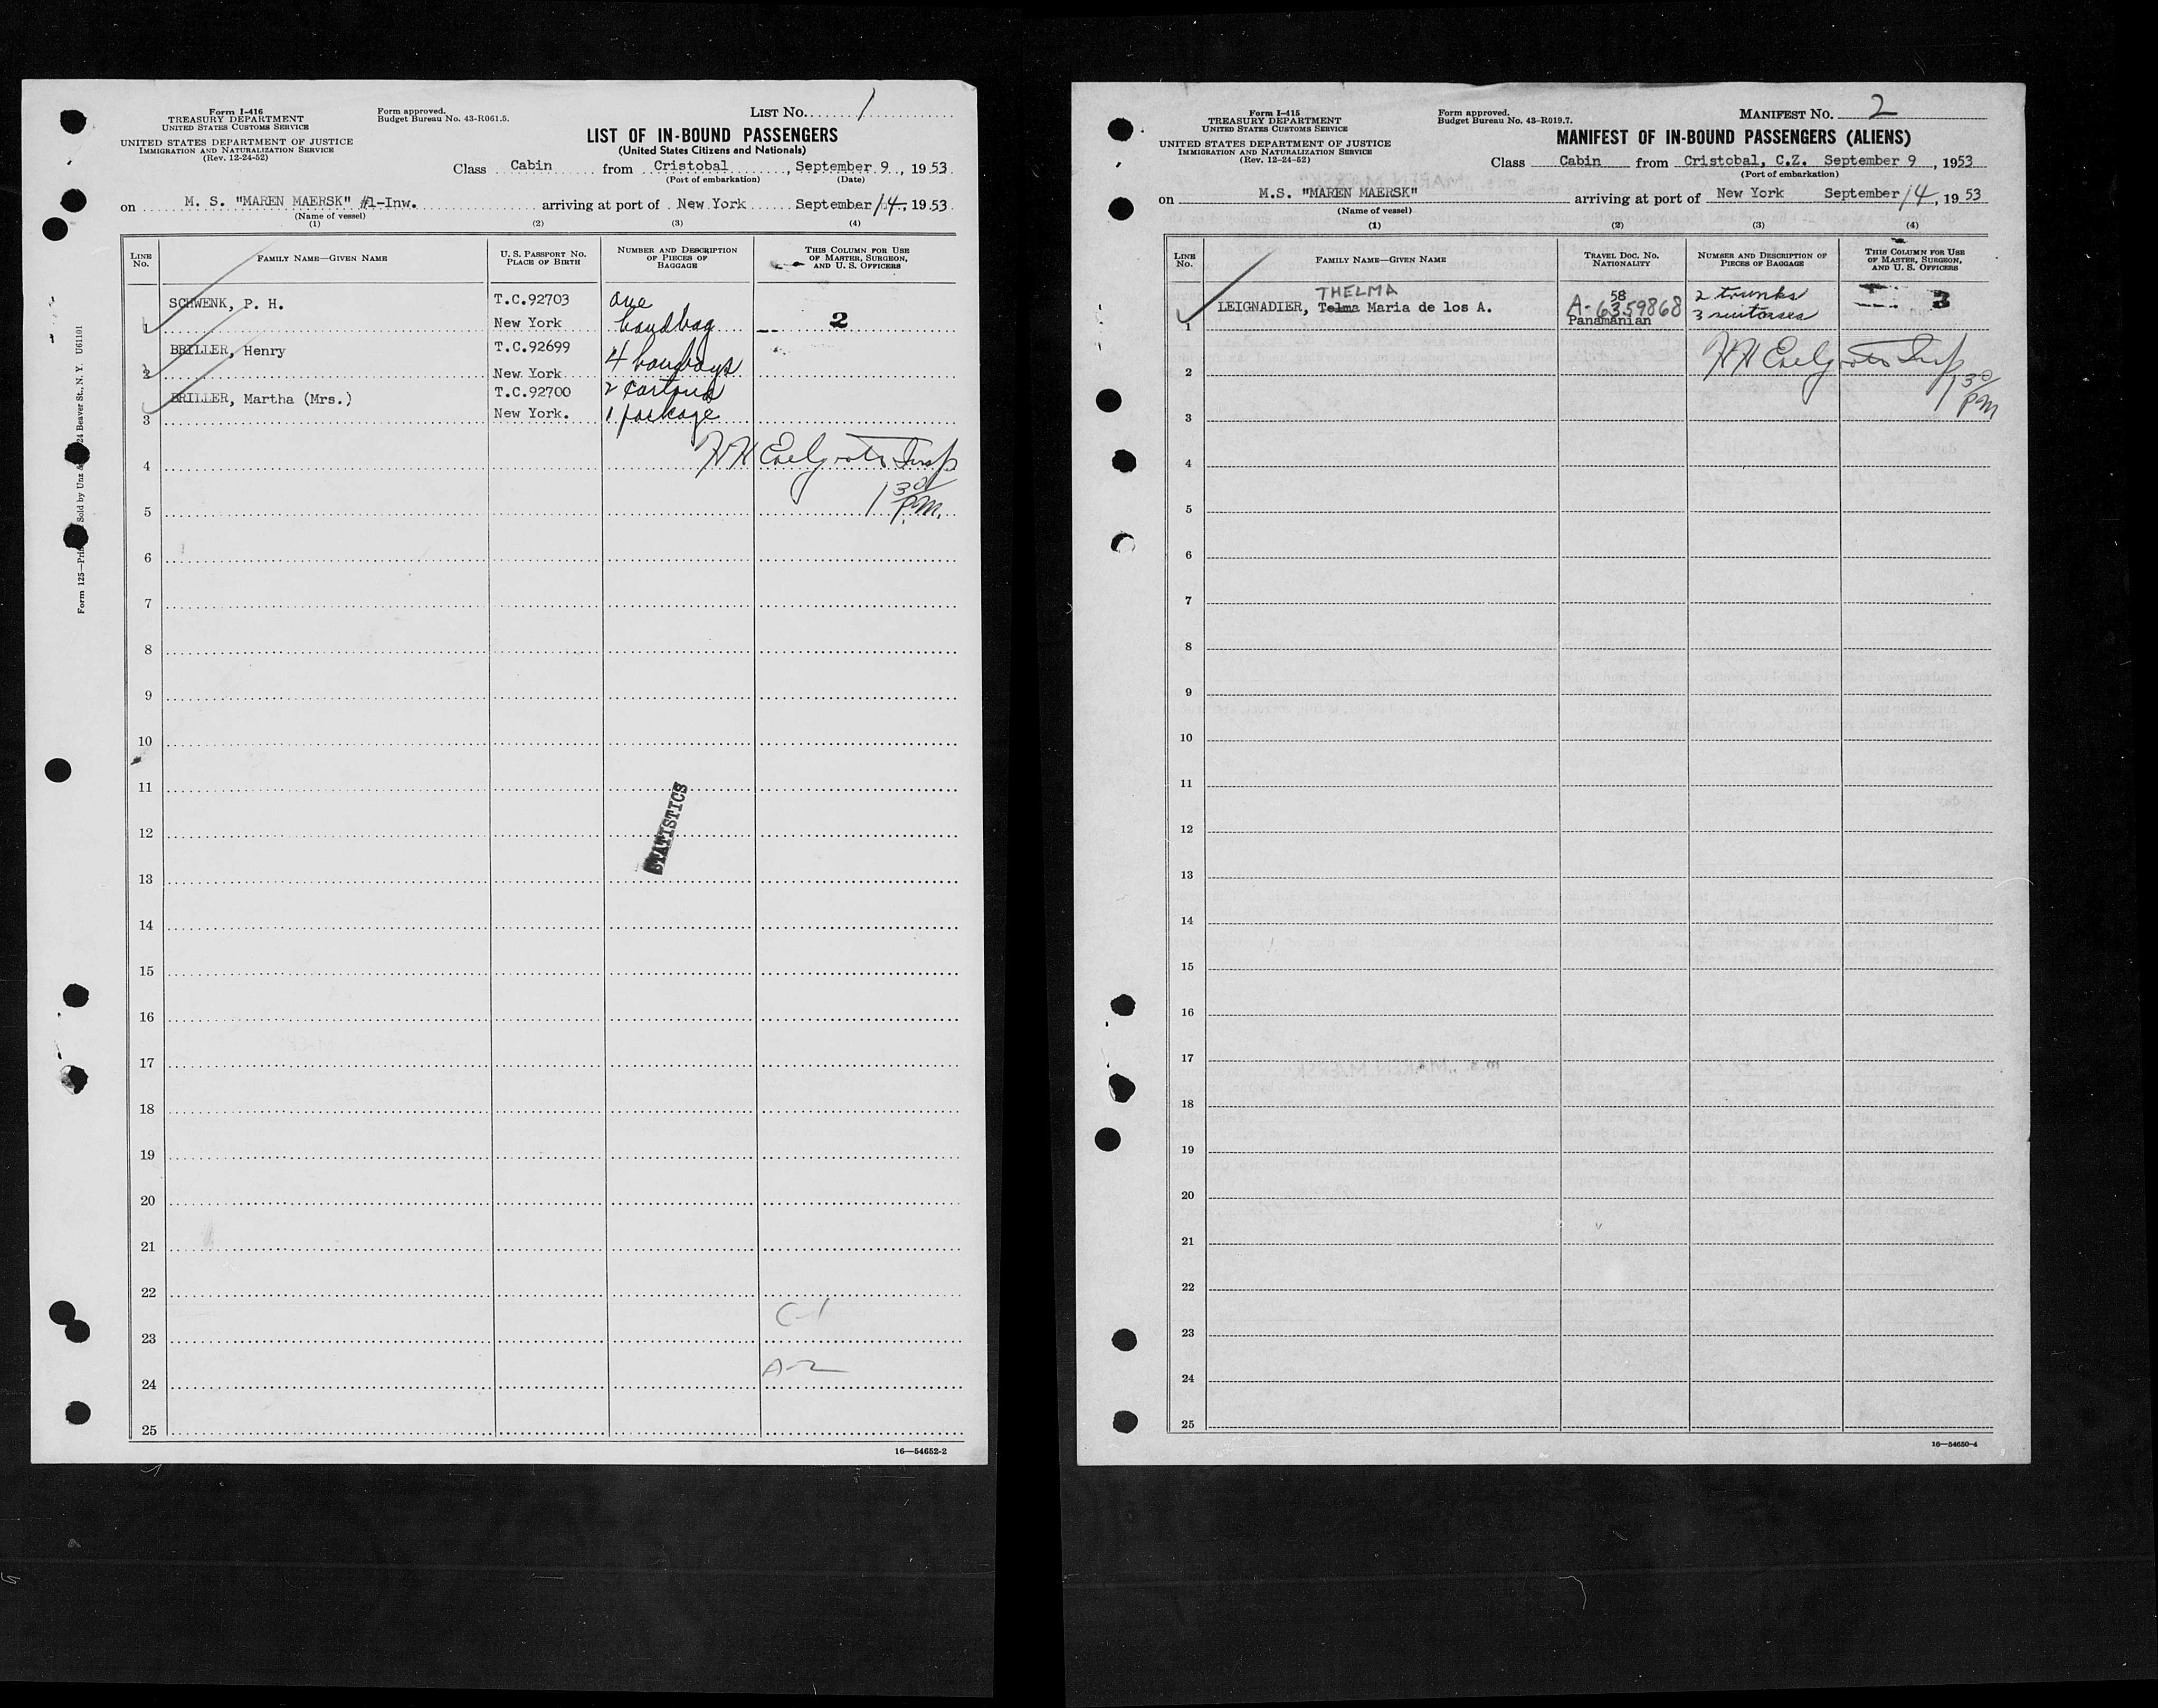 Form I-416
TREASURY DEPARTMENT
UNITED STATES CUSTOMS SERVICE
UNITED STATES DEPARTMENT OF JUSTICE
IMMIGRATION AND NATURALIZATION SERVICE
(Rev. 12-24-52)
Form approved.
Budget Bureau No. 43-R061.5.
LIST No. 1
LIST OF IN-BOUND PASSENGERS
(United States Citizens and Nationals)
Class Cabin from Cristobal, September 9, 1953
(Port of embarkation) (Date)
on M. S. "MAREN MAERSK" #1-Inw. arriving at port of New York September 14, 1953
(Name of vessel)
(1) (2) (3) (4)
LINE No. FAMILY NAME—GIVEN NAME U. S. PASSPORT No. PLACE OF BIRTH NUMBER AND DESCRIPTION OF PIECES OF BAGGAGE THIS COLUMN FOR USE OF MASTER, SURGEON, AND U. S. OFFICERS
SCHWENK, P. H. T.C.92703 one
1 New York handbag 2
BRILLER, Henry T.C.92699 4 handbags
2 New York
BRILLER, Martha (Mrs.) T.C.92700 2 cartons
3 New York. 1 package
4
1 30
5 P.M.
6
7
8
9
10
11
12
STATISTICS
13
14
15
16
17
18
19
20
21
22
C-1
23
A-2
24
25
16—54652-2
Form 125— Sold by Unz & 24 Beaver St., N. Y. U61101
Form I-415
TREASURY DEPARTMENT
UNITED STATES CUSTOMS SERVICE
UNITED STATES DEPARTMENT OF JUSTICE
IMMIGRATION AND NATURALIZATION SERVICE
(Rev. 12-24-52)
Form approved.
Budget Bureau No. 43-R019.7.
MANIFEST No. 2
MANIFEST OF IN-BOUND PASSENGERS (ALIENS)
Class Cabin from Cristobal, C.Z. September 9, 1953
(Port of embarkation)
on M.S. "MAREN MAERSK" arriving at port of New York September 14, 1953
(Name of vessel)
(1) (2) (3) (4)
LINE No. FAMILY NAME—GIVEN NAME TRAVEL DOC. No. NATIONALITY NUMBER AND DESCRIPTION OF PIECES OF BAGGAGE THIS COLUMN FOR USE OF MASTER, SURGEON, AND U. S. OFFICERS
THELMA 58 2 trunks
LEIGNADIER, Telma Maria de los A. A-6359868 3 suitcases 3
1 Panamanian
2
1 30
PM
3
4
5
6
7
8
9
10
11
12
13
14
15
16
17
18
19
20
21
22
23
24
25
16—54650-4